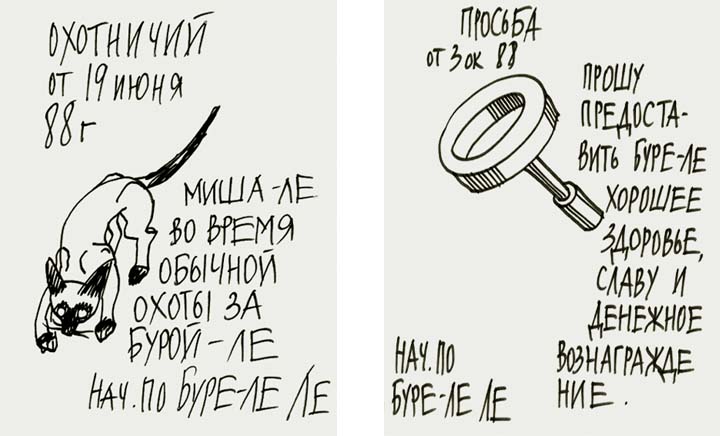 ОХОТНИЧИЙ
от 19 июня
88 г
МИША-ЛЕ
ВО ВРЕМЯ
ОБЫЧНОЙ
ОХОТЫ ЗА
БУРОЙ-ЛЕ
НАЧ. ПО БУРЕ-ЛЕ ЛЕ
ПРОСЬБА
от 3 ок 88
ПРОШУ
ПРЕДОСТА-
ВИТЬ БУРЕ-ЛЕ
ХОРОШЕЕ
ЗДОРОВЬЕ,
СЛАВУ И
ДЕНЕЖНОЕ
ВОЗНАГРАЖДЕ
НИЕ.
НАЧ. ПО
БУРЕ-ЛЕ ЛЕ